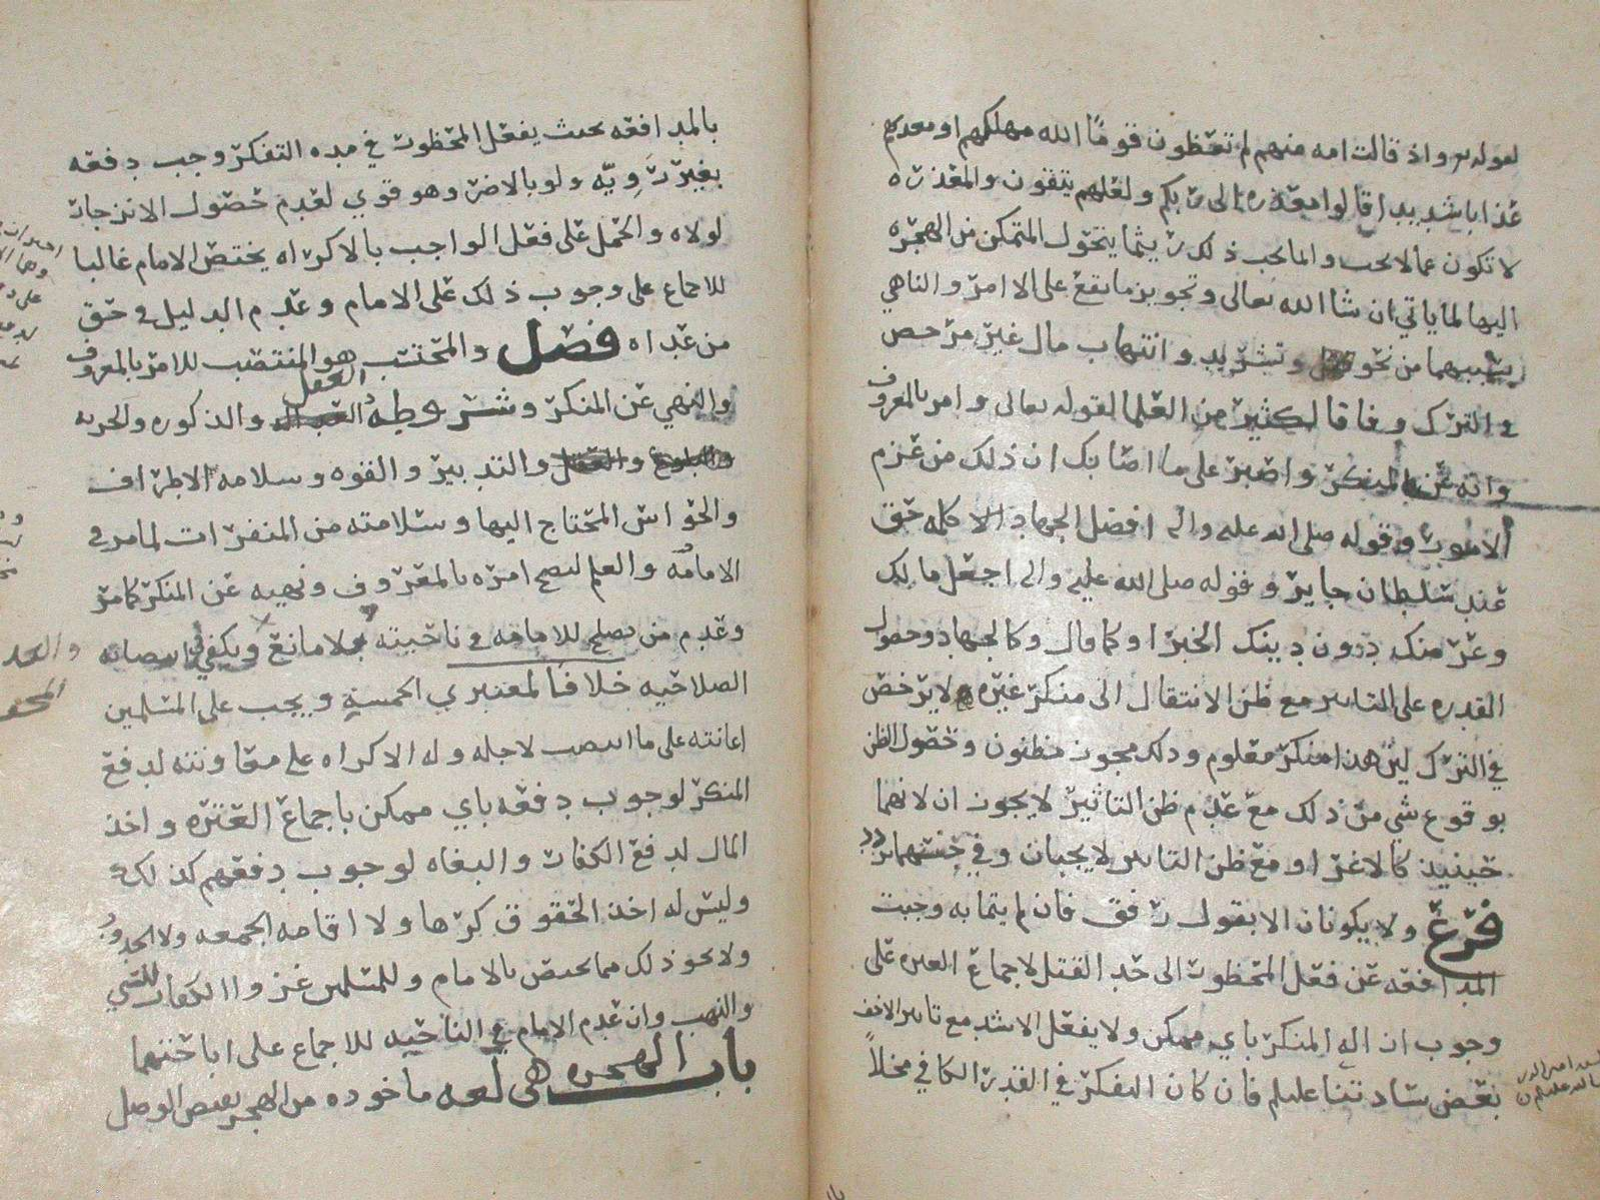 لقوله تعالى واذ قالت امه منهم لم تعظون قومًا الله مهلكهم او معذبهم
عذابا شديدا قالوا معذره الى ربكم ولعلهم يتقون والمعذره
لا تكون عما لا يجب وانما يجب ذلك ريثما يتحول المتمكن من الهجره
اليها لما ياتي ان شا الله تعالى وتجويز ما يقع على الامر والناهي
بسببهما من نحو وتشريد وانتهاب مال غير مرخص
في الترك وفاقا لكثير من العلما لقوله تعالى وامر بالمعروف
وانه عن المنكر واصبر على ما اصابك ان ذلك من عزم
الامور وقوله صلى الله عليه واله افضل الجهاد كلمه حق
عند سلطان جاير وقوله صلى الله عليه واله اجعل مالك
وعرضك دون دينك الخبر او كما قال وكالجهاد وحصول
القدره على التاثير مع ظن الانتقال الى منكر غيره لا يرخص
في الترك لان هذا منكر معلوم وذلك مجوز مظنون وحصول الظن
بوقوع شي من ذلك مع عدم ظن التاثير لا يجوز ان لانهما
حينيذ كالاغرا ومع ظن التاثير لا يجبان وفي حسنهما تردد
فرع ولا يكونان الا بقول رفق فان لم يتما به وجبت
المدافعه عن فعل المحظور الى حد القتل لاجماع العتره على
وجوب ازاله المنكر باي ممكن ولا يفعل الاشد مع تاثير الاخف
بعض سادتنا عليلم فان كان التفكر في القدر الكافي مخلاً
بالمدافعه بحيث يفعل المحظور في مده التفكر وجب دفعه
بغير رَوِيّه ولو بالاضر وهو قوي لعدم حصول الانزجار
لولاه والحمل على فعل الواجب بالاكراه يختص الامام غالبا
للاجماع على وجوب ذلك على الامام وعدم الدليل في حق
من عداه فصل والمحتسب هو المنتصب للامر بالمعروف
والنهي عن المنكر وشروطه العقل والذكوره والحريه
والتدبير والقوه وسلامه الاطراف
والحواس المحتاج اليها وسلامته من المنفرات لما مر في
الامامه والعلم ليصح امره بالمعروف ونهيه عن المنكر كما مر
وعدم من يصلح للامامه في ناحيته بلا مانع ويكفي في انتصابه
الصلاحيه خلافا لمعتبري الخمسة ويجب على المسلمين
اعانته على ما انتصب لاجله وله الاكراه على معاونته لدفع
المنكر لوجوب دفعه باي ممكن باجماع العتره واخذ
المال لدفع الكفار والبغاه لوجوب دفعهم كذلك
وليس له اخذ الحقوق كرها ولا اقامه الجمعه ولا الحدود
ولا نحو ذلك مما يختص بالامام وللمسلمين غزوا الكفار للسبي
والنهب وان عدم الامام في الناحيه للاجماع على اباحتهما
باب الهجره هي لغه ماخوذه من الهجر نقيض الوصل